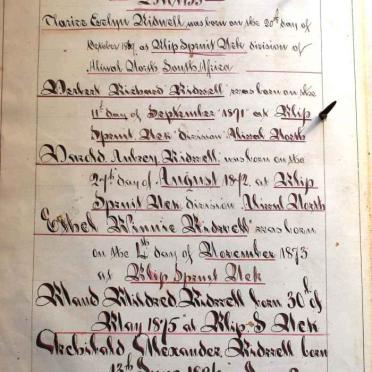 Births
Clarice Evelyn Bidwell was born on the 20th day of
at Klip Spruit Nek division of
Aliwal North South Africa
Herbert Richard Bidwell was born on the
11th day of September 1871 at Klip
Spruit Nek division Aliwal North
Harold Aubrey Bidwell was born on the
27th day of August 1872 at Klip
Spruit Nek division Aliwal North
Ethel Winnie Bidwell was born
on the 4th day of November 1873
at Klip Spruit Nek
Maud Mildred Bidwell born 30th of
May 1875 at Klip S Nek
Archibald Alexander Bidwell born
13th June